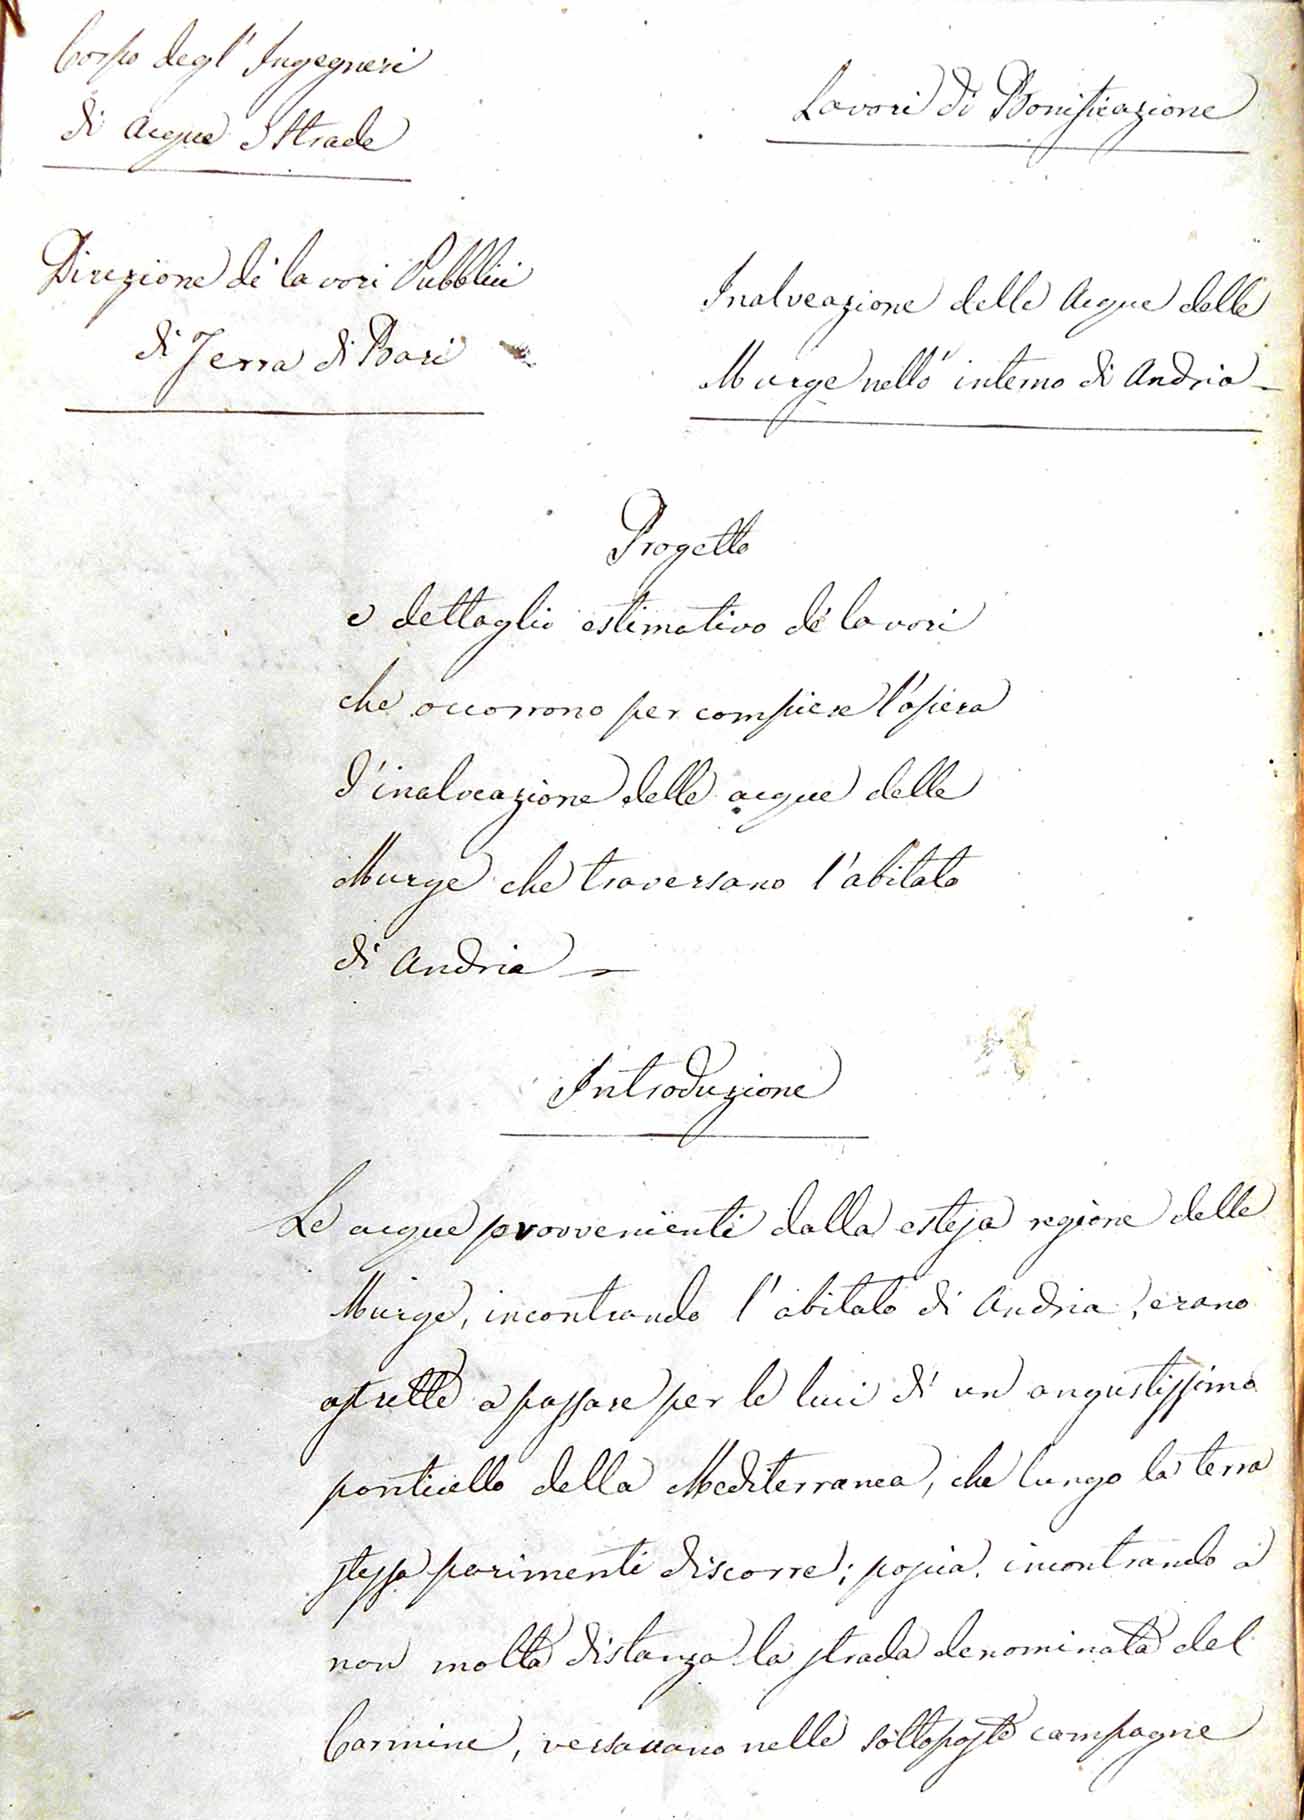 Corpo degl' Ingegneri
di Acque e Strade
Lavori di Bonificazione
Direzione de' lavori Pubblici
di Terra di Bari
Inalveazione delle Acque delle
Murge nell' interno di Andria
Progetto
e dettaglio estimativo de' lavori
che occorrono per compiere l'opera
d'inalveazione delle acque delle
Murge che traversano l'abitato
di Andria
Introduzione
Le acque provvenienti dalla estesa regione delle
Murge, incontrando l'abitato di Andria, erano
astrette a passare per le luci di un angustissimo
ponticello della Mediterranea, che lungo la terra
stessa parimenti discorre; poscia incontrando a
non molta distanza la strada denominata del
Carmine, versavano nelle sottoposte campagne